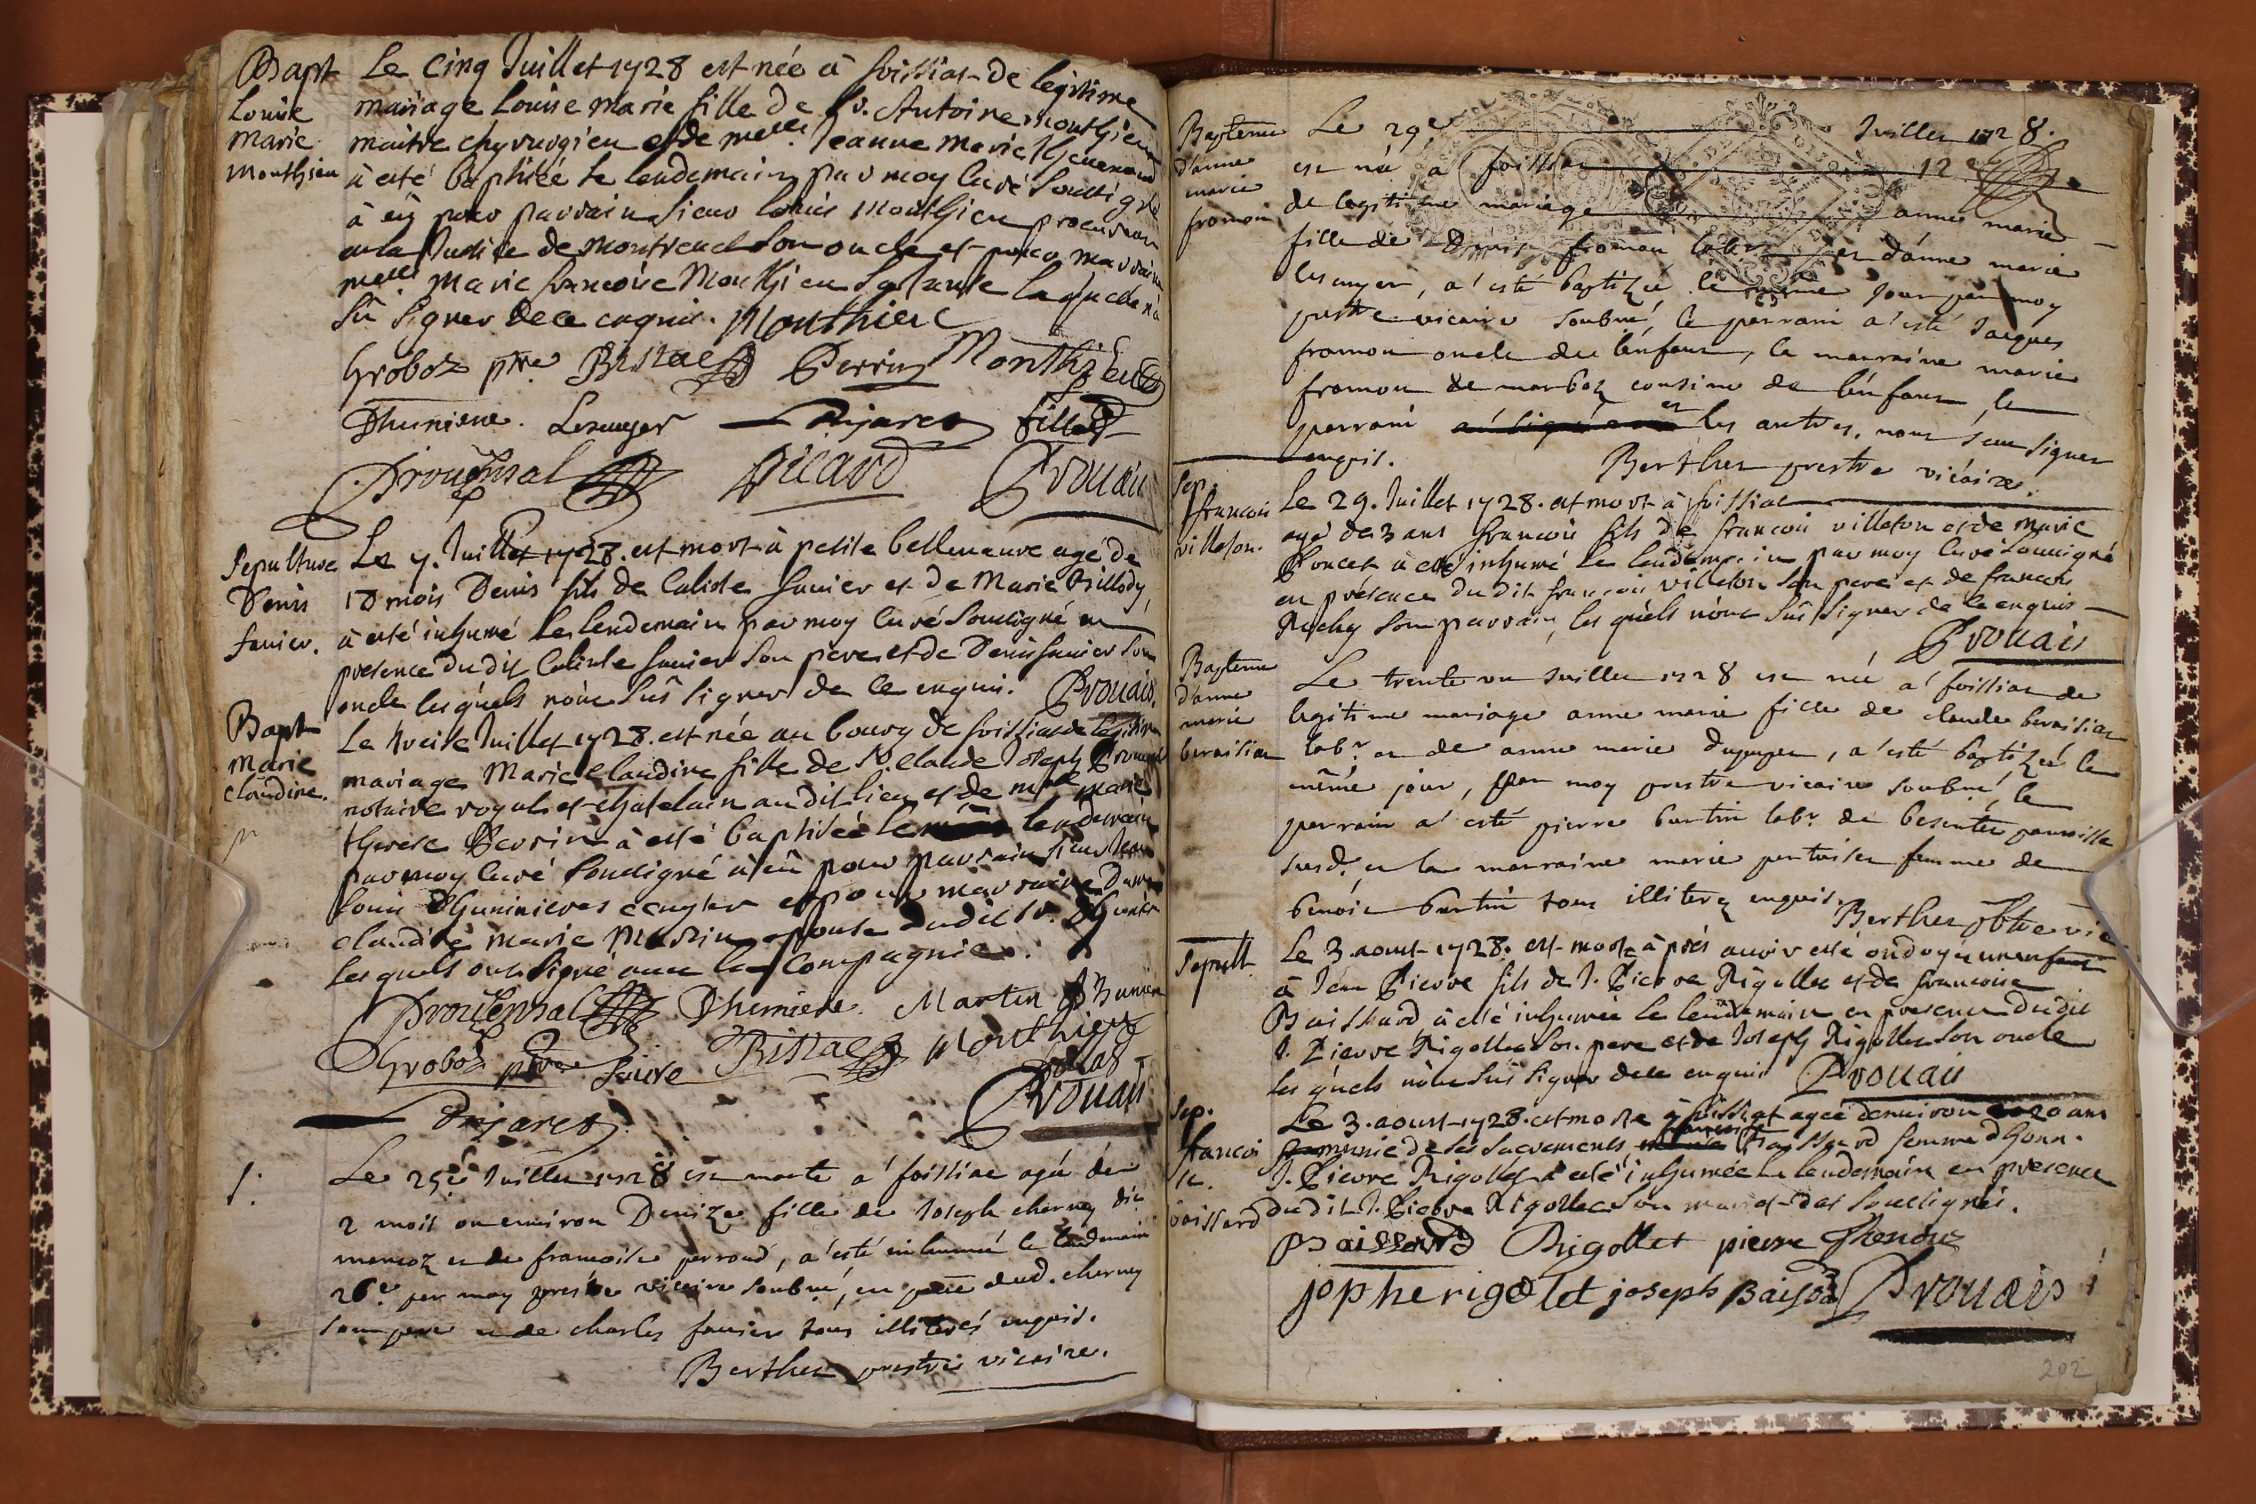 Bapt
Louise
Marie
Monthieu
Le cinq Juillet 1728 est née à foissiat de legitime
mariage Louise marie fille de Sr. Antoine Monthieu
maitre chyrurgien et de melle. Jeanne Marie
à esté baptisée le lendemain par moy curé soussigné
à eü pour parrain sieur Louis Monthieu procureur
en la Justice de Montrevel son oncle et pour marraine
melle Marie francoise Monthieu sa tante laquelle n'a
sû signer de ce enquis. Monthieu
Groboz ptre Bistac Perrin Monthieu
Dhuniere. Lesuyer Pijaret fillod
Prouensal Picard Drouais
Sepulture
Denis
fanier.
Le 7. Juillet 1728. est mort à petite bellevavre agé de
18 mois Denis fils de Caliste fanier et de Marie Billody,
à esté inhumé le lendemain par moy curé soussigné en
presence dudit Caliste fanier son pere et de Denis fanier son
oncle lesquels n'ont sû signer de ce enquis. Drouais.
Bapt
Marie
Claudine.
Le treize Juillet 1728. est née au bourg de foissiat de legitime
mariage Marie Claudine fille de Sr Claude Joseph Prouensal
notaire royal et chatelain audit lieu et de melle Marie
therese Perrin à esté baptisée le lendemain
par moy curé soussigné a eû pour parrain sieur Jean
Louis Dhuninieres ecuyer et pour marraine Dame
claudine marie Martin epouse dudit sr. Dhuniere
lesquels ont signé avec la compagnie.
Prouensal Dhuniere. Martin Dhuniere
Groboz ptre faivre Bistac Monthieu
Pijaret Drouais
S.
Le 25e Juillet 1728 est morte a' foissiat agée de
2 mois ou environ Denize fille de Joseph cherney dit
mercoz et de francoise perroud, a' esté inhumée le lendemain
26e. par moy prestre vicaire soubné, en pnce dud. cherney
son pere et de charles fanier tous illiterés enquis.
Berthet prestre vicaire.
Bapteme
d'anne
marie
fromon
Le 29e Juillet 1728.
est née a' foissiat 12
de legitime mariage anne marie
fille de Denis fromon labr et d'anne marie
lesuyer, a' esté baptizée le même jour par moy
prestre vicaire soubné, le parrain a' esté Jacques
fromon oncle de l'enfant, la marraine marie
fromon de marboz cousine de l'enfant, le
parrain et les autres, nont sceu signer
enquis. Berthet prestre vicaire.
Sep.
francois
villeton.
Le 29. Juillet 1728. est mort à foissiat
agé de 3 ans francois fils de francois villeton et de Marie
Poncet à esté inhumé le lendemain par moy curé soussigné
en présence dudit francois villeton son pere et de francois
son parrain, lesquels n'ont sû signer de ce enquis
Drouais
Bapteme
d'anne
marie
beraisiat
Le trente un Juillet 1728 est née a' foissiat de
legitime mariage anne marie fille de claude beraisiat
labr. et de anne marie dupuper, a' esté baptizée le
même jour, par moy prestre vicaire soubné, le
parrain a' esté pierre burtin labr. de besentée parroisse
susd. et la marraine marie pertuiset femme de
benoit burtin tous illiterez enquis.
Berthet pbtre vic
Sepult.
Le 3. aoust 1728. est mort à prés avoir esté ondoyé un enfant
à Jean Pierre fils de J. Pierre Rigollet et de francoise
Baissard à esté inhumé le lendemain en presence dudit
J. Pierre Rigollet son pere et de Joseph Rigollet son oncle
lesquels n'ont sû signer de ce enquis Drouais
Sep.
francoise
baissard
Le 3. aoust 1728. est morte à foissiat agée denviron 20 ans
munie de ses sacrements, francoise Baissard femme dhonn.
J. Pierre Rigollet à esté inhumée le lendemain en presence
dudit J. Pierre Rigollet son mari et des soussignés.
Baissard Rigollet pierre Thenoz
jopherigollet joseph Baissa Drouais
202